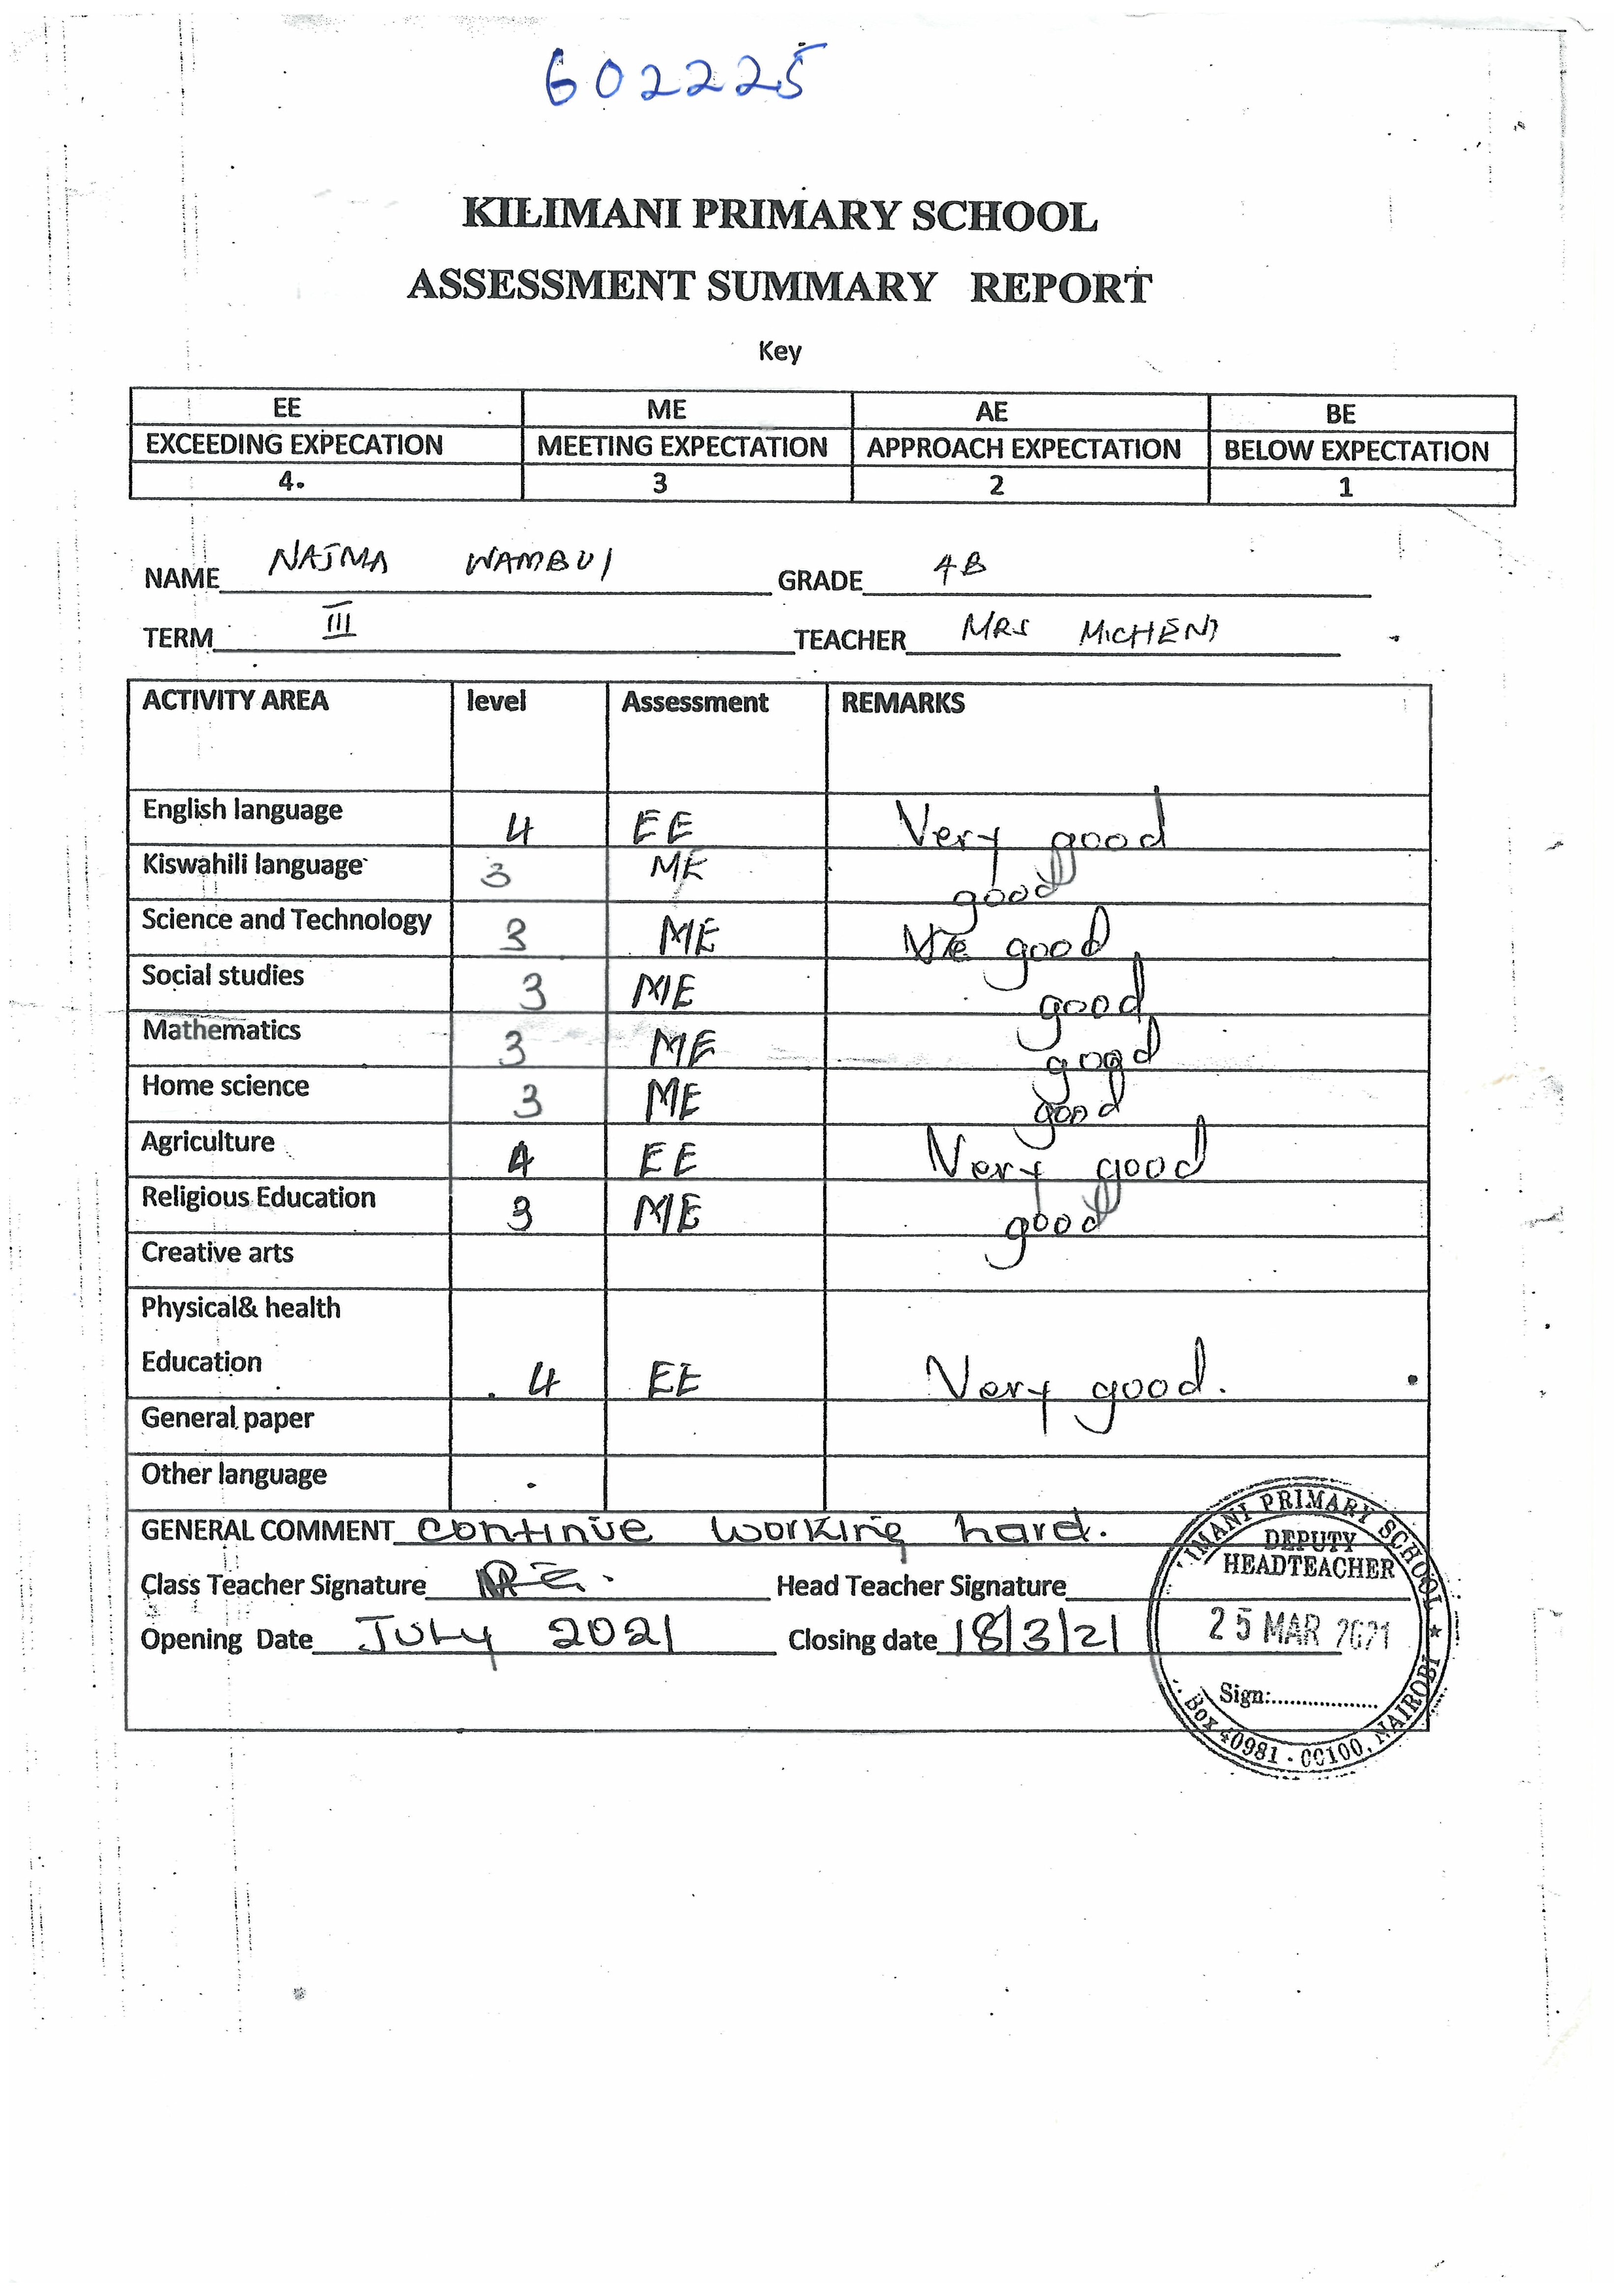 602225
KILIMANI PRIMARY SCHOOL
ASSESSMENT SUMMARY REPORT
Key
EE ME AE BE
EXCEEDING EXPECATION MEETING EXPECTATION APPROACH EXPECTATION BELOW EXPECTATION
4. 3 2 1
NAME NAJMA WAMBUI GRADE 4B
TERM III TEACHER MRS MICHENI
ACTIVITY AREA level Assessment REMARKS
English language 4 EE Very good
Kiswahili language 3 ME good
Science and Technology 3 ME good
Social studies 3 ME good
Mathematics 3 ME good
Home science 3 ME good
Agriculture 4 EE Very good
Religious Education 3 ME good
Creative arts
Physical& health
Education 4 EE Very good.
General paper
Other language
GENERAL COMMENT continue working hard.
Class Teacher Signature Head Teacher Signature
Opening Date July 2021 Closing date 18/3/21
IMANI PRIMARY SCHOOL
DEPUTY
HEADTEACHER
25 MAR 2021
Sign:..................
Box 40981 - 00100, NAIROBI